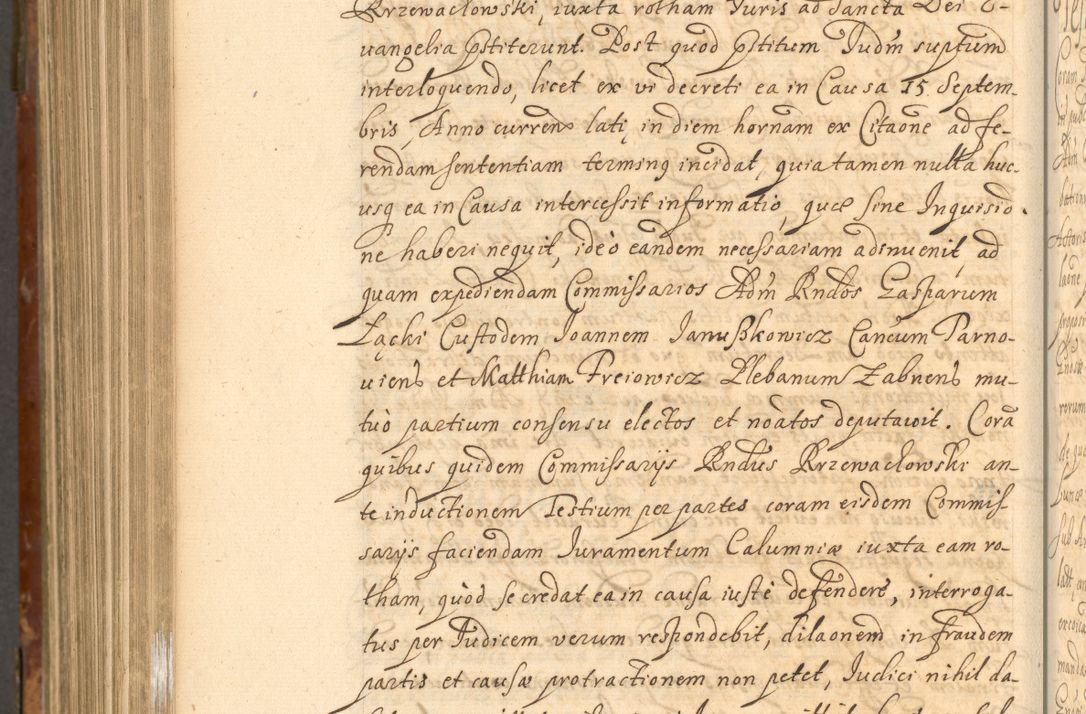 Krzewacłowski, iuxta rotham Juris ad Sancta Dei E-
vangelia pstiterunt. Post quod pstitum Judm suptum
interloquendo, licet ex vi decreti ea in Causa 15 Septem-
bris, Anno curren lati, in diem hornam ex Citaone ad fe-
rendam sententiam terming incidat, quia tamen nulla huc-
usq ea in Causa intercessit informatio, quæ sine Inquisio-
ne haberi nequit, ideo eandem necessariam adinuenit, ad
quam expediendam Commissarios Adm Rndos Gasparum
Łącki Custodem, Joannem Janußkowicz Cancum Tarno-
uiens et Matthiam Freiowicz Plebanum Zabnens mu-
tuò partium consensu electos et noatos deputavit. Corã
quibus quidem Commissarijs Rndus Krzewacłowski an-
te inductionem Testium per partes coram eisdem Commis-
sarijs faciendam Juramentum Calumniæ iuxta eam ro-
tham, quòd se credat ea in causa iustè defendere, interroga-
tus per Judicem verum respondebit, dilaonem in fraudem
partis et causæ protractionem non petet, Judici nihil da-